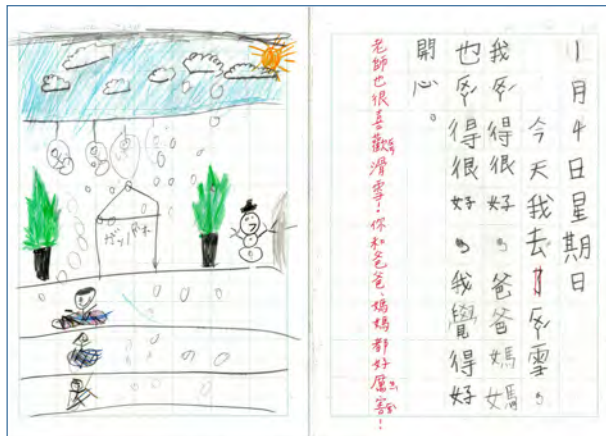 1月4日星期日
今天我去雪，
我得很好，爸爸媽媽
也得很好，我覺得好
開心。
老師也很喜歡滑雪！你和爸爸、媽媽都好厲害！